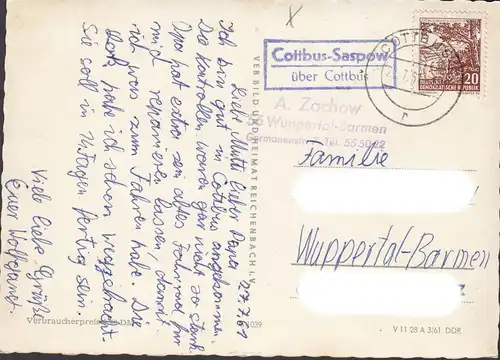 27.7.61
Liebe Mutti, lieber Papa
Ich bin gut in Cottbus angekommen.
Die Kontrollen waren gar nicht so stark.
Opa hat extra sein altes Fahrrad für
mich reparieren lassen, damit
ich was zum Fahren habe. Die
hab ich schon weggebracht.
Sie soll in Tagen fertig sein.
Viele liebe Grüße
Euer Wolfgang.
VEB BILD UND HEIMAT REICHENBACH i. V.
Verbraucherpreis
039
Cottbus-Saspow
über Cottbus
COTTBUS
DEUTSCHE
DEMOKRATISCHE REPUBLIK
20
A. Zachow
Wuppertal-Barmen
Germanenstr. Tel. 55 50 22
Familie
Wuppertal-Barmen
V 11 28 A 3/61 DDR